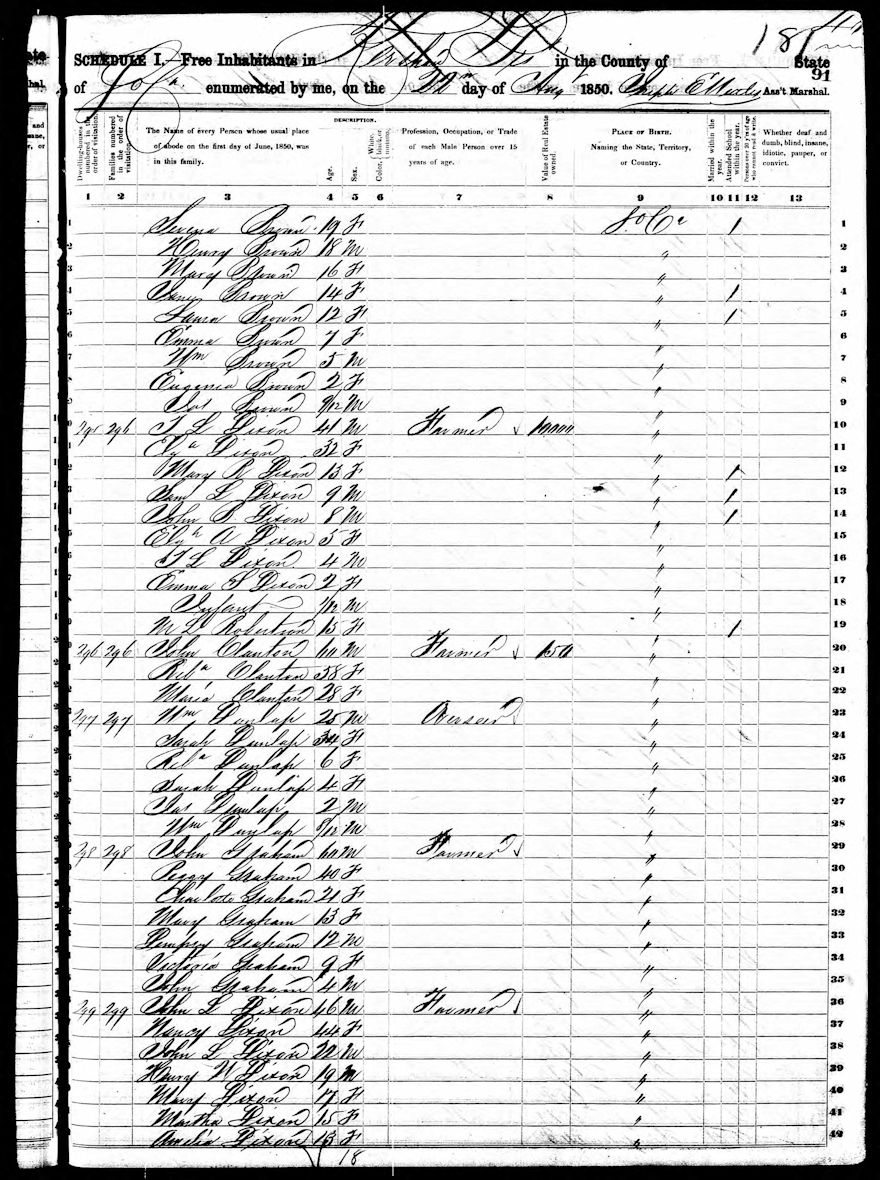 181
SCHEDULE I.—Free Inhabitants in Kershaw Dis in the County of State
91
of So Ca. enumerated by me, on the 22 day of Aug 1850. Ass't Marshal.
Dwelling-houses numbered in the order of visitation.
Families numbered in the order of visitation.
The Name of every Person whose usual place of abode on the first day of June, 1850, was in this family.
DESCRIPTION.
Age.
Sex.
Color,
White, black, or mulatto.
Profession, Occupation, or Trade of each Male Person over 15 years of age.
Value of Real Estate owned.
PLACE OF BIRTH.
Naming the State, Territory, or Country.
Married within the year.
Attended School within the year.
Persons over 20 y'rs of age who cannot read & write.
Whether deaf and dumb, blind, insane, idiotic, pauper, or convict.
1 2 3 4 5 6 7 8 9 10 11 12 13
Brown 19 F So Ca 1 1
Henry Brown 18 M " 2
Mary Brown 16 F " 3
Brown 14 F " 1 4
Laura Brown 12 F " 1 5
Emma Brown 7 F " 6
Wm Brown 5 M " 7
Eugenia Brown 2 F " 8
Jas Brown 9/12 M " 9
296 T L Dixon 41 M Farmer " 10
Dixon 32 F " 11
Mary R Dixon 13 F " 1 12
Sam L Dixon 9 M " 1 13
John Dixon 8 M " 1 14
A Dixon 5 F " 15
T L Dixon 4 M " 16
Emma S Dixon 2 F " 17
Infant 1/12 M " 18
M L Robertson 15 F " 1 19
296 296 John Clanton 60 M Farmer 150 " 20
Reba Clanton 58 F " 21
Maria Clanton 28 F " 22
297 297 Wm Dunlap 25 M Overseer " 23
Sarah Dunlap 34 F " 24
Reba Dunlap 6 F " 25
Sarah Dunlap 4 F " 26
Jas Dunlap 2 M " 27
Wm Dunlap 8/12 M " 28
298 298 John Graham 60 M Farmer " 29
Peggy Graham 40 F " 30
Charlotte Graham 21 F " 31
Mary Graham 13 F " 32
Dempsy Graham 12 M " 33
Victoria Graham 9 F " 34
John Graham 4 M " 35
299 299 John L Dixon 46 M Farmer " 36
Nancy Dixon 44 F " 37
John L Dixon 22 M " 38
Henry W Dixon 19 M " 39
Mary Dixon 17 F " 40
Martha Dixon 15 F " 41
Amelia Dixon 13 F " 42
18